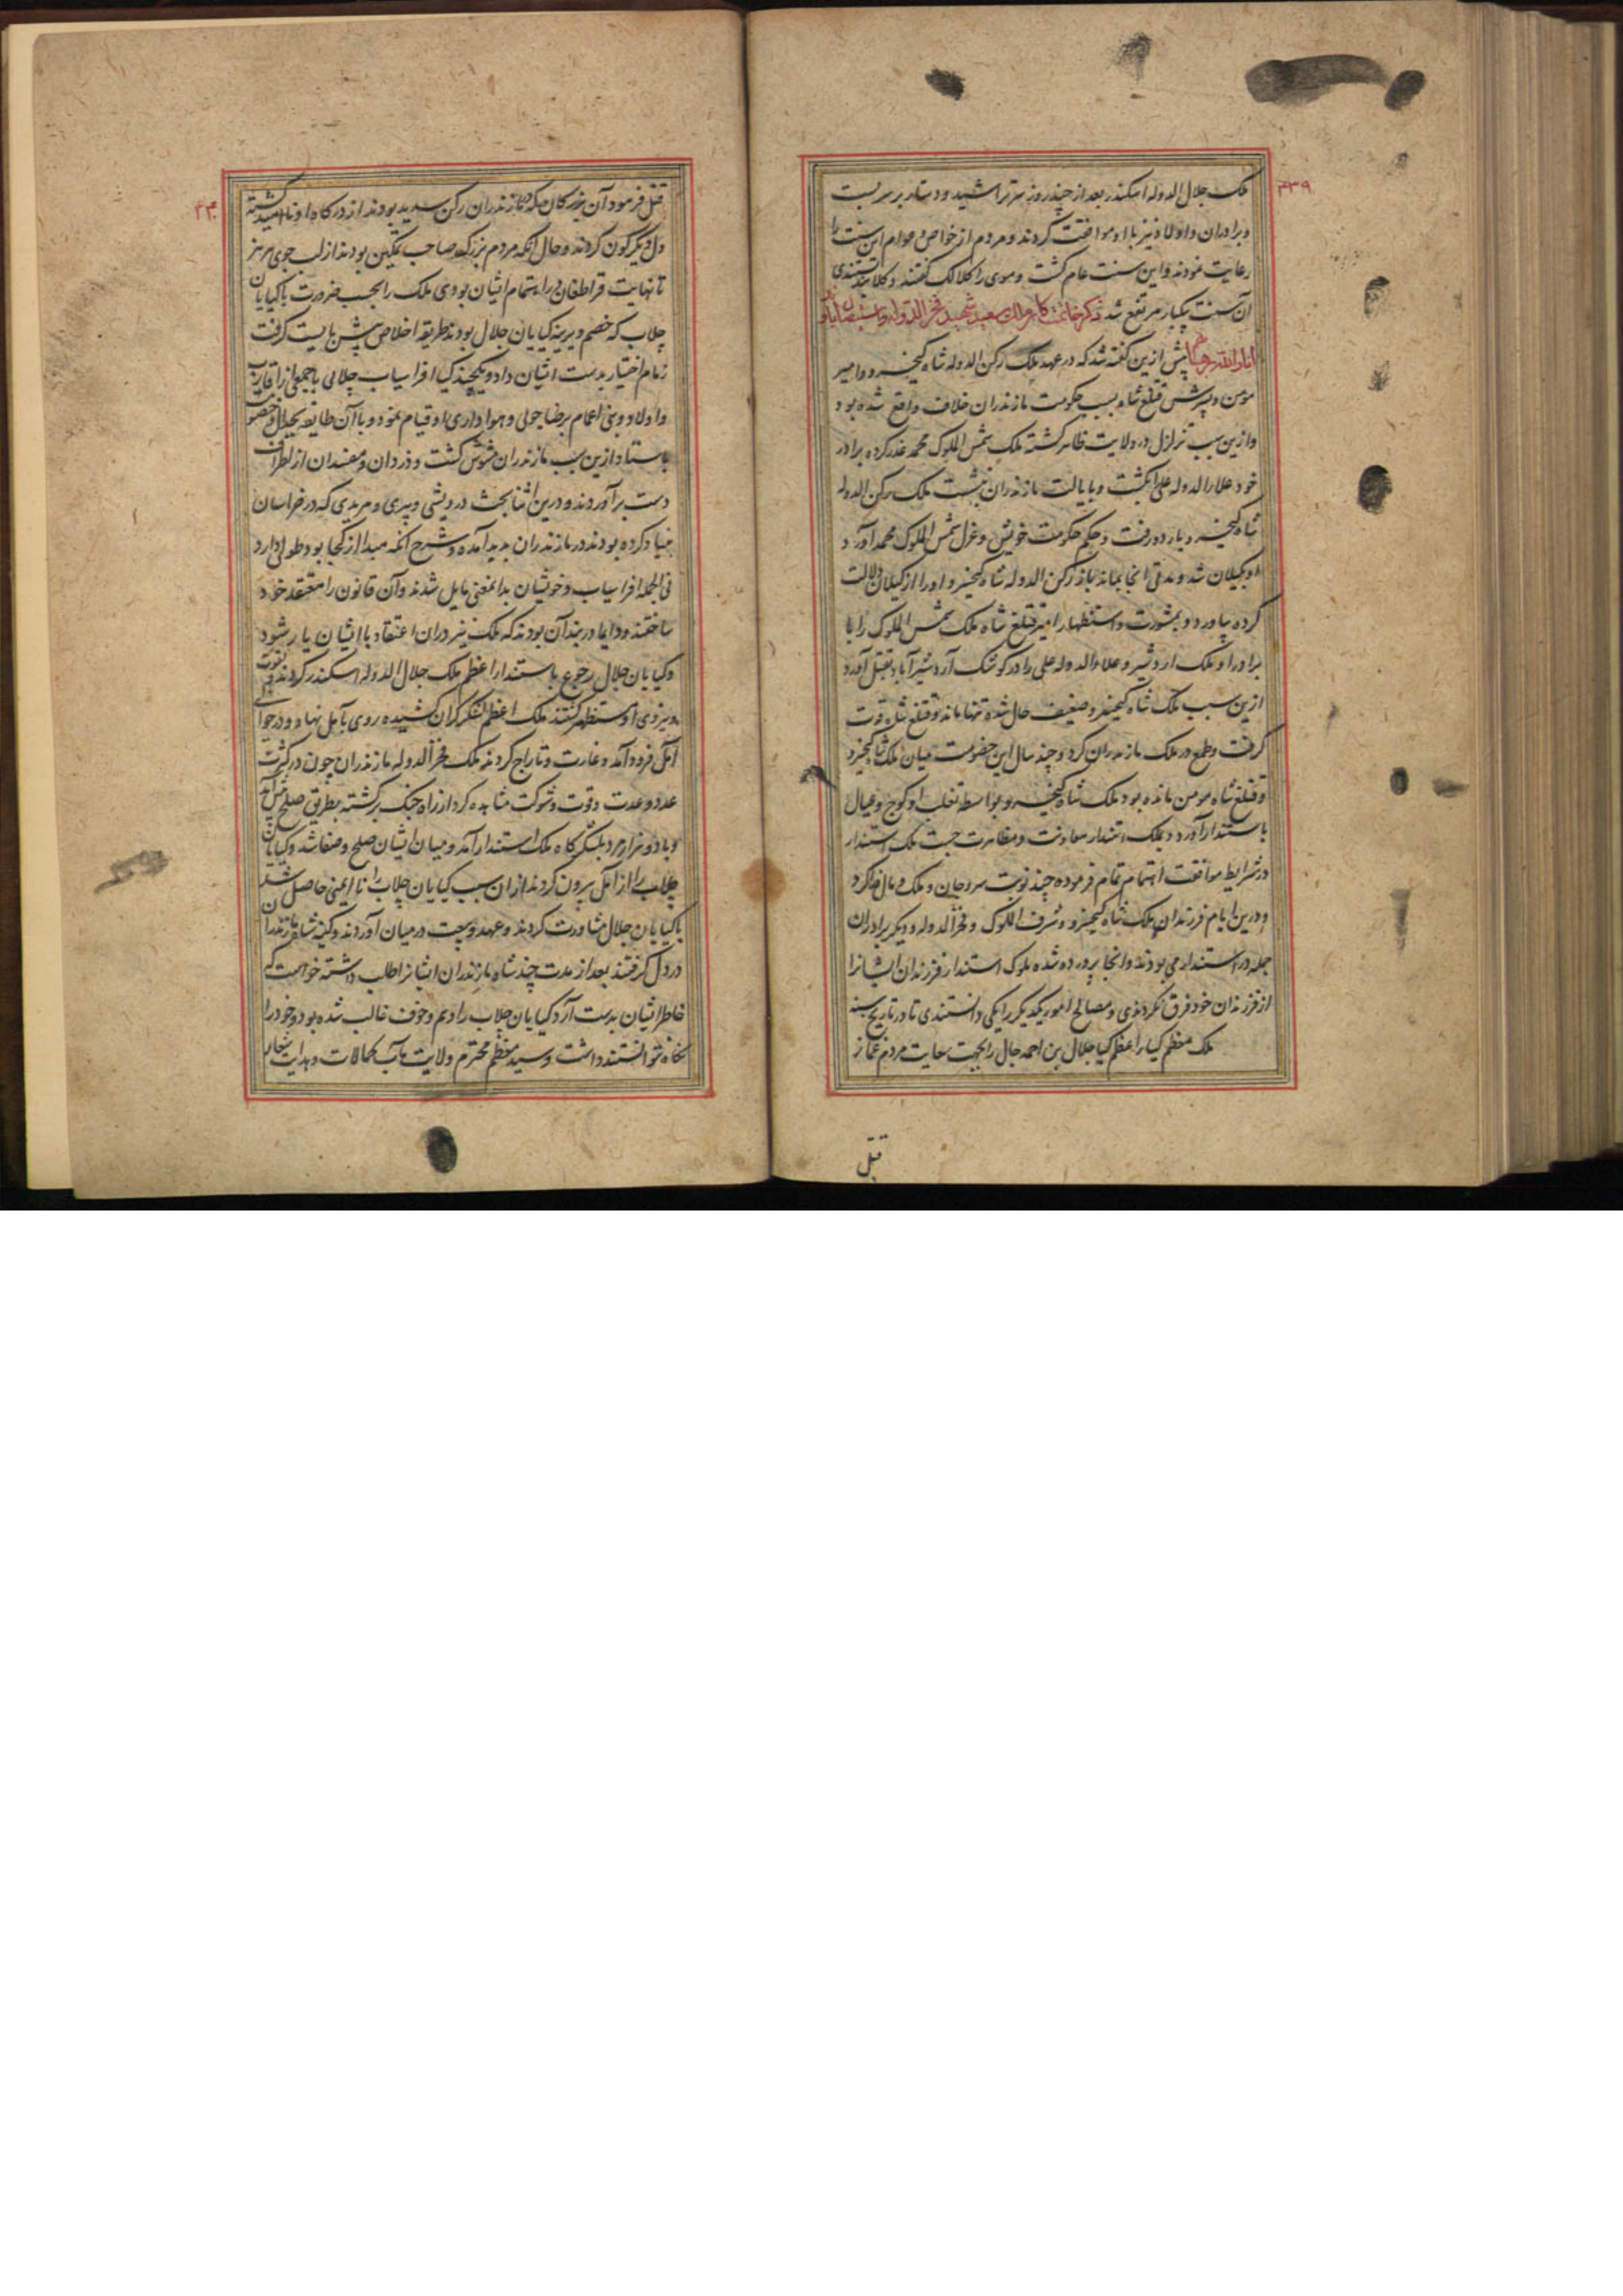 ۴۳۹
ملک جلال الدوله اسکندر بعد از چند روز سر تراشید و دستار بر سر بست
و برادران و اولاد نیز با او موافقت کردند و مردم از خواص و عوام این سنت را
رعایت نمودند و این سنت عام گشت و موی را کلالک گفتند و کلا
آن سنت یکبار مرتفع شد ذکر خاتمت کار ملک سعید شهید فخر الدوله
انار الله برهانهم پیش ازین گفته شد که در عهد ملک رکن الدوله شاه کیخسرو و امیر
مومن و پسرش قتلغ شاه بسبب حکومت مازندران خلاف واقع شده بود
و ازین سبب تزلزل در ولایت ظاهر گشته ملک شمس الملوک محمد غدر کرده برادر
خود علاء الدوله علی بکشت و بایالت مازندران بنشست ملک رکن الدوله
شاه کیخسرو باردو رفت و حکم حکومت خویش و عزل شمس الملوک محمد آورد
او بکیلان شد و مدتی آنجا بماند باز رکن الدوله شاه کیخسرو او را از کیلان دلالت
کرده بیاورد و بمشورت و استظهار امیر قتلغ شاه ملک شمس الملوک را با
برادر او ملک اردشیر و علاء الدوله علی را در کوشک اردشیرآباد بقتل آورد
ازین سبب ملک شاه کیخسرو ضعیف حال شده تنها ماند و قتلغ شاه قوت
گرفت و طمع در ملک مازندران کرد و چند سال این خصومت میان ملک شاه کیخسرو
و قتلغ شاه مومن مانده بود ملک شاه کیخسرو بواسطه تغلب او کوچ و عیال
باستندار آورد و بملک استندار معاونت و مظاهرت جست ملک استندار
در شرایط موافقت اهتمام تمام فرموده چند نوبت سر و جان و ملک و مال فدا کرد
و درین ایام فرزندان ملک شاه کیخسرو و شرف الملوک و فخر الدوله و دیگر برادران
جمله در استندار می بودند و آنجا پرورده شده ملوک استندار فرزندان ایشانرا
از فرزندان خود فرق نکردندی و مصالح امور یکدیگر را یکی دانستندی تا در تاریخ سنه
ملک معظم کیاء اعظم کیا جلال بن احمد جال را بجهت سعایت مردم غماز
قتل
۴۴۰
قتل فرمود آن بزرگان که مازندران رکن سدید بودند از درکاه او ناامید گشته
دل دیگرگون کردند و حال آنکه مردم بزرگ و صاحب تمکین بودند از لب جوی هرهز
تا نهایت قراطغان در اهتمام ایشان بودی ملک را بحسب ضرورت با کیایان
چلاب که خصم دیرینه کیایان جلال بودند طریقه اخلاص پیش بایست گرفت
زمام اختیار بدست ایشان داد و یکچند کیا افراسیاب چلابی با جمعی از اقارب
و اولاد و بنی اعمام برضا جوئی و هواداری او قیام نمود و با آن طایفه بجدال و خصومت
باستاد ازین سبب مازندران مشوش گشت و دزدان و مفسدان از اطراف
دست برآوردند و درین اثنا بحث درویشی و پیری و مریدی که در خراسان
بنیاد کرده بودند در مازندران پدید آمده و شرح آنکه مبدا از کجا بود طولی دارد
فی الجمله افراسیاب و خویشان بدانمعنی مایل شدند و آن قانون را معتقد خود
ساختند و دایما دربند آن بودند که ملک نیز در ان اعتقاد با ایشان یار شود
و کیایان جلال رجوع باستندار اعظم ملک جلال الدوله اسکندر کردند و بقوت
و نیروی او مستظهر گشتند ملک اعظم لشکر گران کشیده روی بآمل نهاد و در حوالی
آمل فرود آمد و غارت و تاراج کردند ملک فخر الدوله مازندران چون در کثرت
عدد و عدت و قوت و شوکت مشاهده کرد از راه جنگ برگشته بطریق صلح پیش آمد
و با دو هزار مرد بلشکرگاه ملک استندار آمد و میان ایشان صلح و صفا شد و کیایان
چلاب را از آمل بیرون کردند از ان سبب کیایان چلاب را ناایمنی حاصل شد
با کیایان جلال مشاورت کردند و عهد و بیعت در میان آوردند و کینه شاه مازندران
در دل گرفتند بعد از مدت چند شاه مازندران ایشانرا طلب داشته خواست که
خاطر ایشان بدست آرد کیایان چلاب را وهم و خوف غالب شده بود و خود را
نگاه نتوانستند داشت و سید معظم محترم ولایت مآب کمالات و هدایت